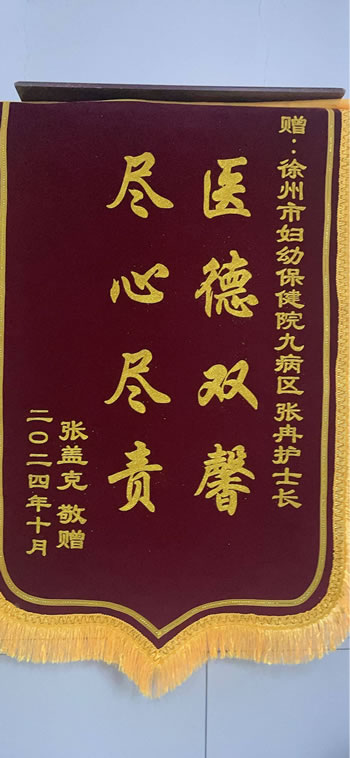 赠：徐州市妇幼保健院九病区 张冉护士长
医德双馨
尽心尽责
张盖克 敬赠
二〇二四年十月